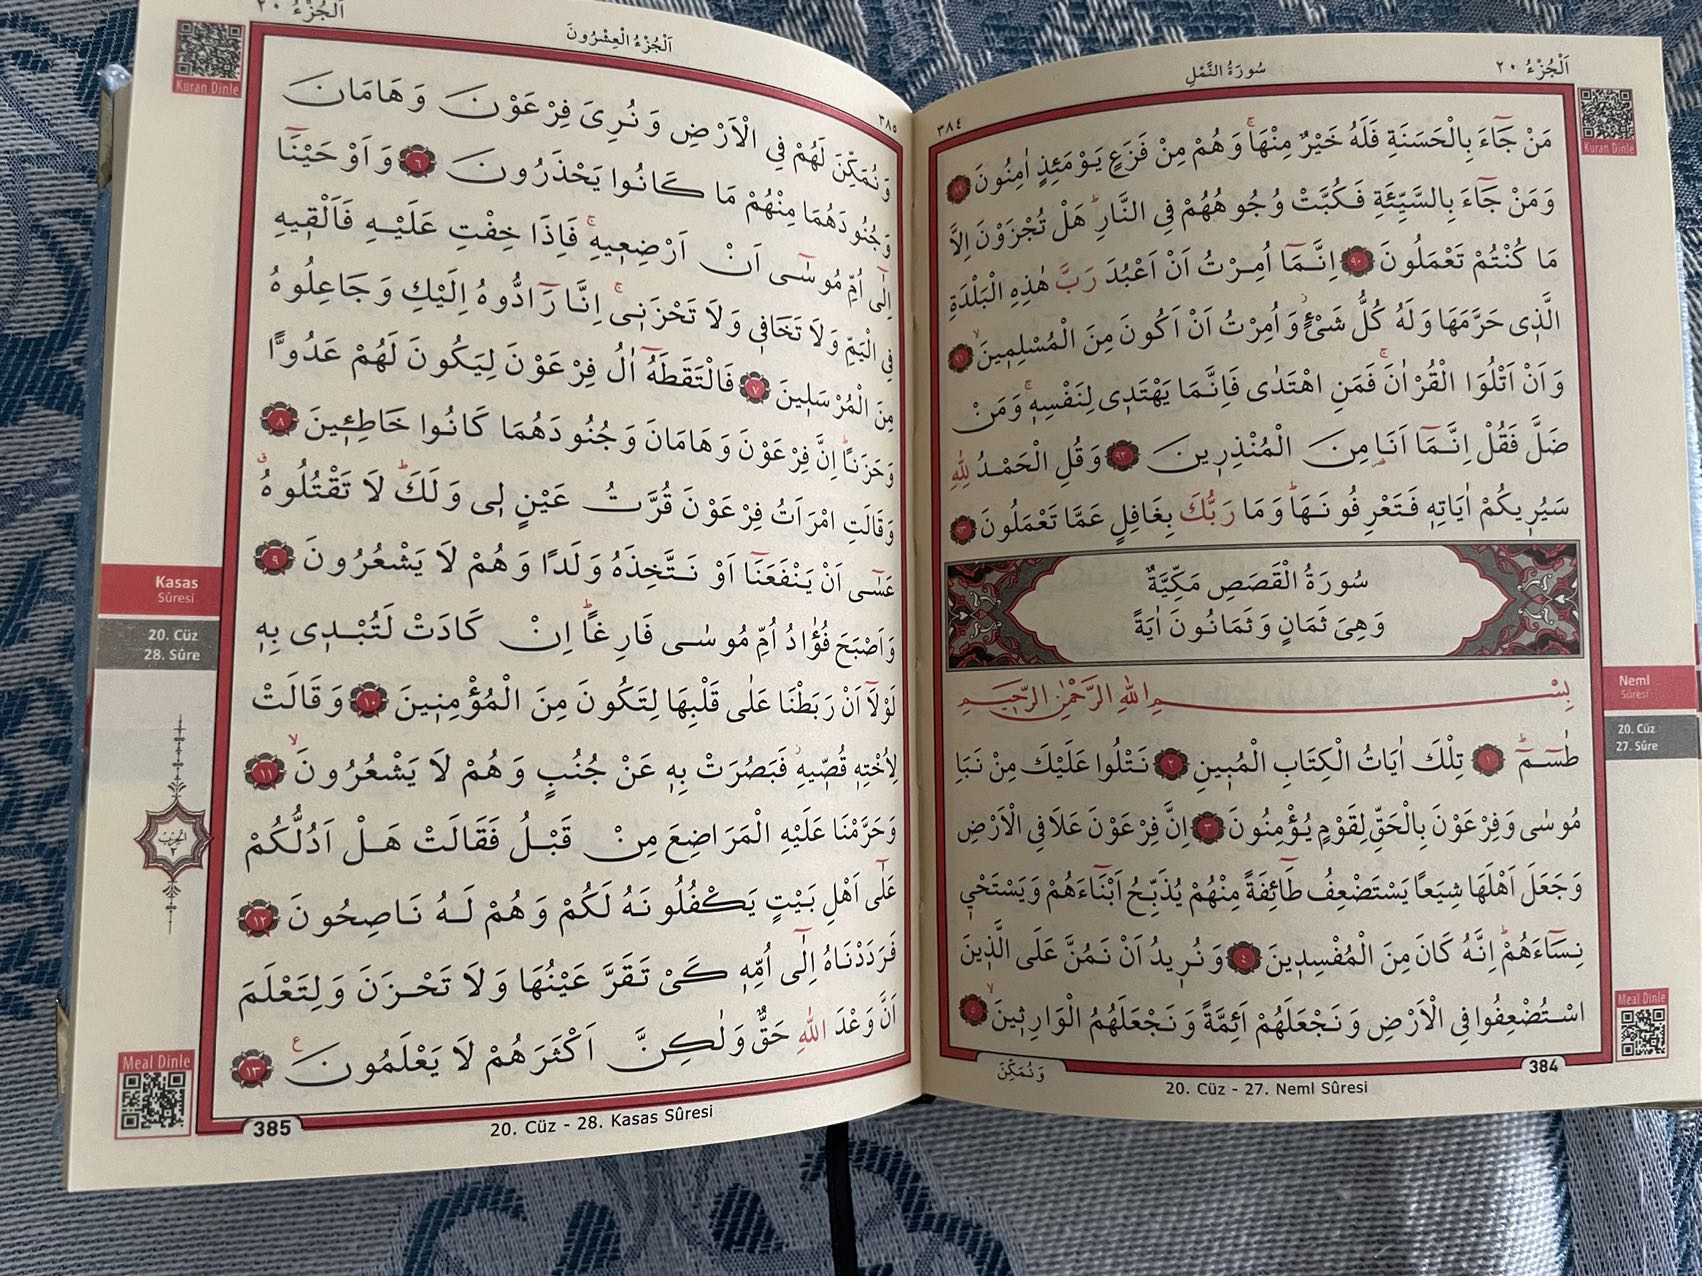 اَلْجُزْءُ ٢٠
سُورَةُ النَّمْلِ
٣٨٤
Kuran Dinle
مَنْ جَٓاءَ بِالْحَسَنَةِ فَلَهُ خَيْرٌ مِنْهَاۚ وَهُمْ مِنْ فَزَعٍ يَوْمَئِذٍ اٰمِنُونَ ٨٩
وَمَنْ جَٓاءَ بِالسَّيِّئَةِ فَكُبَّتْ وُجُوهُهُمْ فِي النَّارِۜ هَلْ تُجْزَوْنَ اِلَّا
مَا كُنْتُمْ تَعْمَلُونَ ٩٠ اِنَّمَٓا اُمِرْتُ اَنْ اَعْبُدَ رَبَّ هٰذِهِ الْبَلْدَةِ
الَّذ۪ي حَرَّمَهَا وَلَهُ كُلُّ شَيْءٍۘ وَاُمِرْتُ اَنْ اَكُونَ مِنَ الْمُسْلِم۪ينَۙ ٩١
وَاَنْ اَتْلُوَا الْقُرْاٰنَۚ فَمَنِ اهْتَدٰى فَاِنَّمَا يَهْتَد۪ي لِنَفْسِه۪ۚ وَمَنْ
ضَلَّ فَقُلْ اِنَّمَٓا اَنَا۬ مِنَ الْمُنْذِر۪ينَ ٩٢ وَقُلِ الْحَمْدُ لِلّٰهِ
سَيُر۪يكُمْ اٰيَاتِه۪ فَتَعْرِفُونَهَاۜ وَمَا رَبُّكَ بِغَافِلٍ عَمَّا تَعْمَلُونَ ٩٣
سُورَةُ الْقَصَصِ مَكِّيَّةٌ
وَهِيَ ثَمَانٍ وَثَمَانُونَ اٰيَةً
بِسْمِ اللّٰهِ الرَّحْمٰنِ الرَّح۪يمِ
طٰسٓمٓۜ ١ تِلْكَ اٰيَاتُ الْكِتَابِ الْمُب۪ينِ ٢ نَتْلُوا عَلَيْكَ مِنْ نَبَاِ
مُوسٰى وَفِرْعَوْنَ بِالْحَقِّ لِقَوْمٍ يُؤْمِنُونَ ٣ اِنَّ فِرْعَوْنَ عَلَا فِي الْاَرْضِ
وَجَعَلَ اَهْلَهَا شِيَعًا يَسْتَضْعِفُ طَٓائِفَةً مِنْهُمْ يُذَبِّحُ اَبْنَٓاءَهُمْ وَيَسْتَحْي۪
نِسَٓاءَهُمْۜ اِنَّهُ كَانَ مِنَ الْمُفْسِد۪ينَ ٤ وَنُر۪يدُ اَنْ نَمُنَّ عَلَى الَّذ۪ينَ
اسْتُضْعِفُوا فِي الْاَرْضِ وَنَجْعَلَهُمْ اَئِمَّةً وَنَجْعَلَهُمُ الْوَارِث۪ينَۙ ٥
وَنُمَكِّنَ
384
20. Cüz - 27. Neml Sûresi
Neml
Sûresi
20. Cüz
27. Sûre
Meal Dinle
اَلْجُزْءُ ٢٠
اَلْجُزْءُ الْعِشْرُونَ
٣٨٥
Kuran Dinle
وَنُمَكِّنَ لَهُمْ فِي الْاَرْضِ وَنُرِيَ فِرْعَوْنَ وَهَامَانَ
وَجُنُودَهُمَا مِنْهُمْ مَا كَانُوا يَحْذَرُونَ ٦ وَاَوْحَيْنَٓا
اِلٰٓى اُمِّ مُوسٰٓى اَنْ اَرْضِع۪يهِۚ فَاِذَا خِفْتِ عَلَيْهِ فَاَلْق۪يهِ
فِي الْيَمِّ وَلَا تَخَاف۪ي وَلَا تَحْزَن۪يۚ اِنَّا رَٓادُّوهُ اِلَيْكِ وَجَاعِلُوهُ
مِنَ الْمُرْسَل۪ينَ ٧ فَالْتَقَطَهُٓ اٰلُ فِرْعَوْنَ لِيَكُونَ لَهُمْ عَدُوًّا
وَحَزَنًاۜ اِنَّ فِرْعَوْنَ وَهَامَانَ وَجُنُودَهُمَا كَانُوا خَاطِـ۪ٔينَ ٨
وَقَالَتِ امْرَاَتُ فِرْعَوْنَ قُرَّتُ عَيْنٍ ل۪ي وَلَكَۜ لَا تَقْتُلُوهُۗ
عَسٰٓى اَنْ يَنْفَعَنَٓا اَوْ نَتَّخِذَهُ وَلَدًا وَهُمْ لَا يَشْعُرُونَ ٩
وَاَصْبَحَ فُؤٰادُ اُمِّ مُوسٰى فَارِغًاۜ اِنْ كَادَتْ لَتُبْد۪ي بِه۪
لَوْلَٓا اَنْ رَبَطْنَا عَلٰى قَلْبِهَا لِتَكُونَ مِنَ الْمُؤْمِن۪ينَ ١٠ وَقَالَتْ
لِاُخْتِه۪ قُصّ۪يهِۘ فَبَصُرَتْ بِه۪ عَنْ جُنُبٍ وَهُمْ لَا يَشْعُرُونَۙ ١١
وَحَرَّمْنَا عَلَيْهِ الْمَرَاضِعَ مِنْ قَبْلُ فَقَالَتْ هَلْ اَدُلُّكُمْ
عَلٰٓى اَهْلِ بَيْتٍ يَكْفُلُونَهُ لَكُمْ وَهُمْ لَهُ نَاصِحُونَ ١٢
فَرَدَدْنَاهُ اِلٰٓى اُمِّه۪ كَيْ تَقَرَّ عَيْنُهَا وَلَا تَحْزَنَ وَلِتَعْلَمَ
اَنَّ وَعْدَ اللّٰهِ حَقٌّ وَلٰكِنَّ اَكْثَرَهُمْ لَا يَعْلَمُونَ ع ١٣
385
20. Cüz - 28. Kasas Sûresi
Kasas
Sûresi
20. Cüz
28. Sûre
الحزب
٢
Meal Dinle